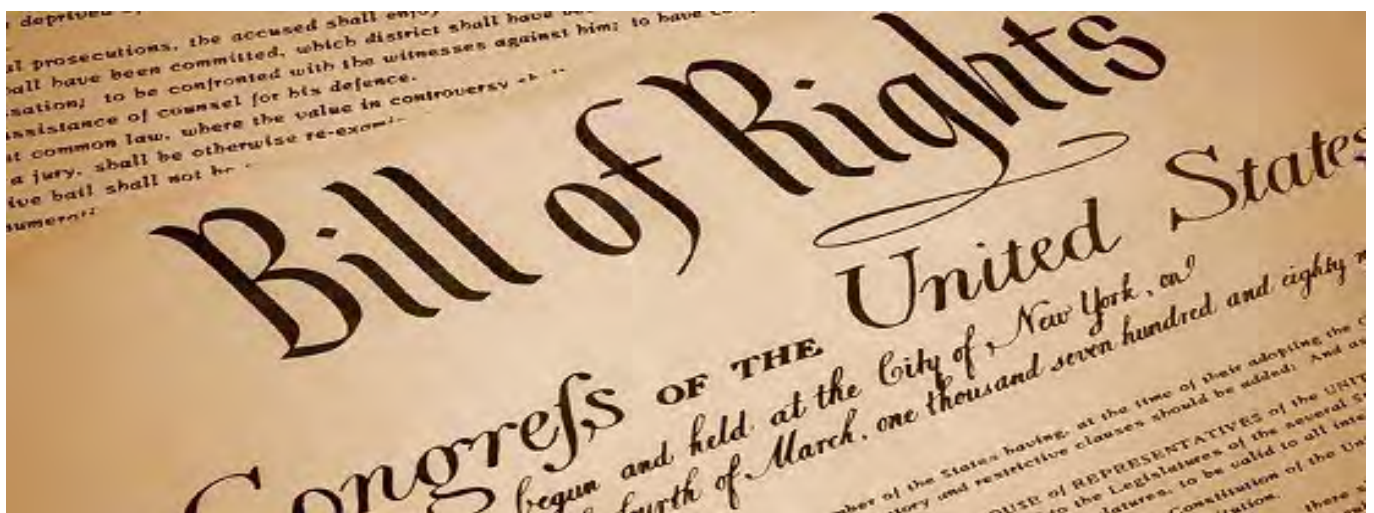 deprived
prosecutions, the accused shall enjoy
have been committed, which district shall have
to be confronted with the witnesses against him; to have
assistance of counsel for his defence.
common law, where the value in controversy
a jury, shall be otherwise
bail shall not be
Bill of Rights
Congreſs OF THE United States
begun and held at the City of New York, on
of March, one thousand seven hundred and eighty
of the States having, at the time of their adopting the
and restrictive clauses should be added: And as
of REPRESENTATIVES of the
to the Legislatures of the several
to be valid to all
Constitution of the
there